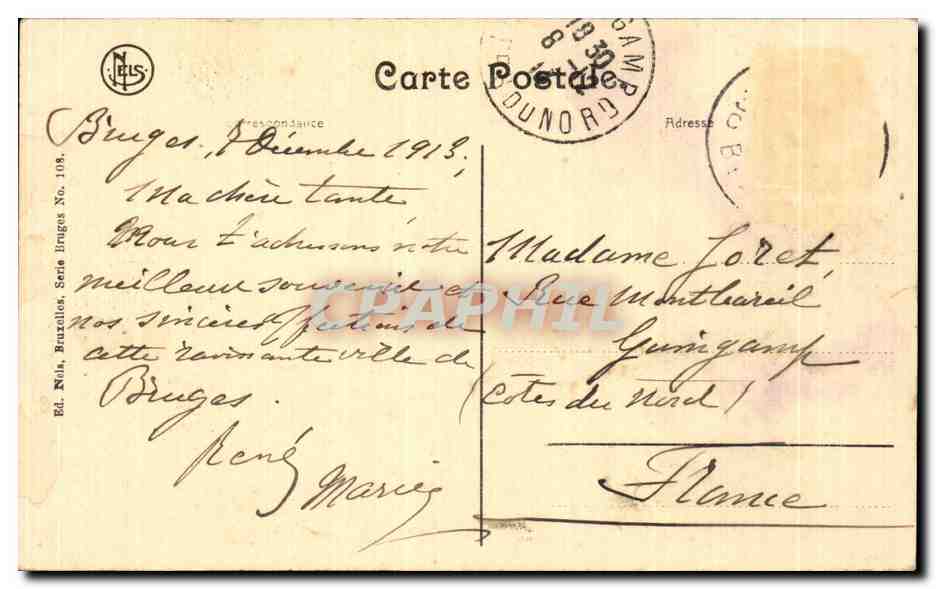 NELS
Carte Postale
Correspondance
Adresse
GAMP
18 30
8 -12
COTES DU NORD
Ed. Nels, Bruxelles, Serie Bruges No. 108.
Bruges, 7 Décembre 1913.
Ma chère tante
Nous t'adressons notre
meilleur souvenir et
nos sincères affections de
cette ravissante ville de
Bruges.
René
Marie
Madame Joret,
Rue Montbareil
Guingamp
(Côtes du Nord)
France
CPAPHIL